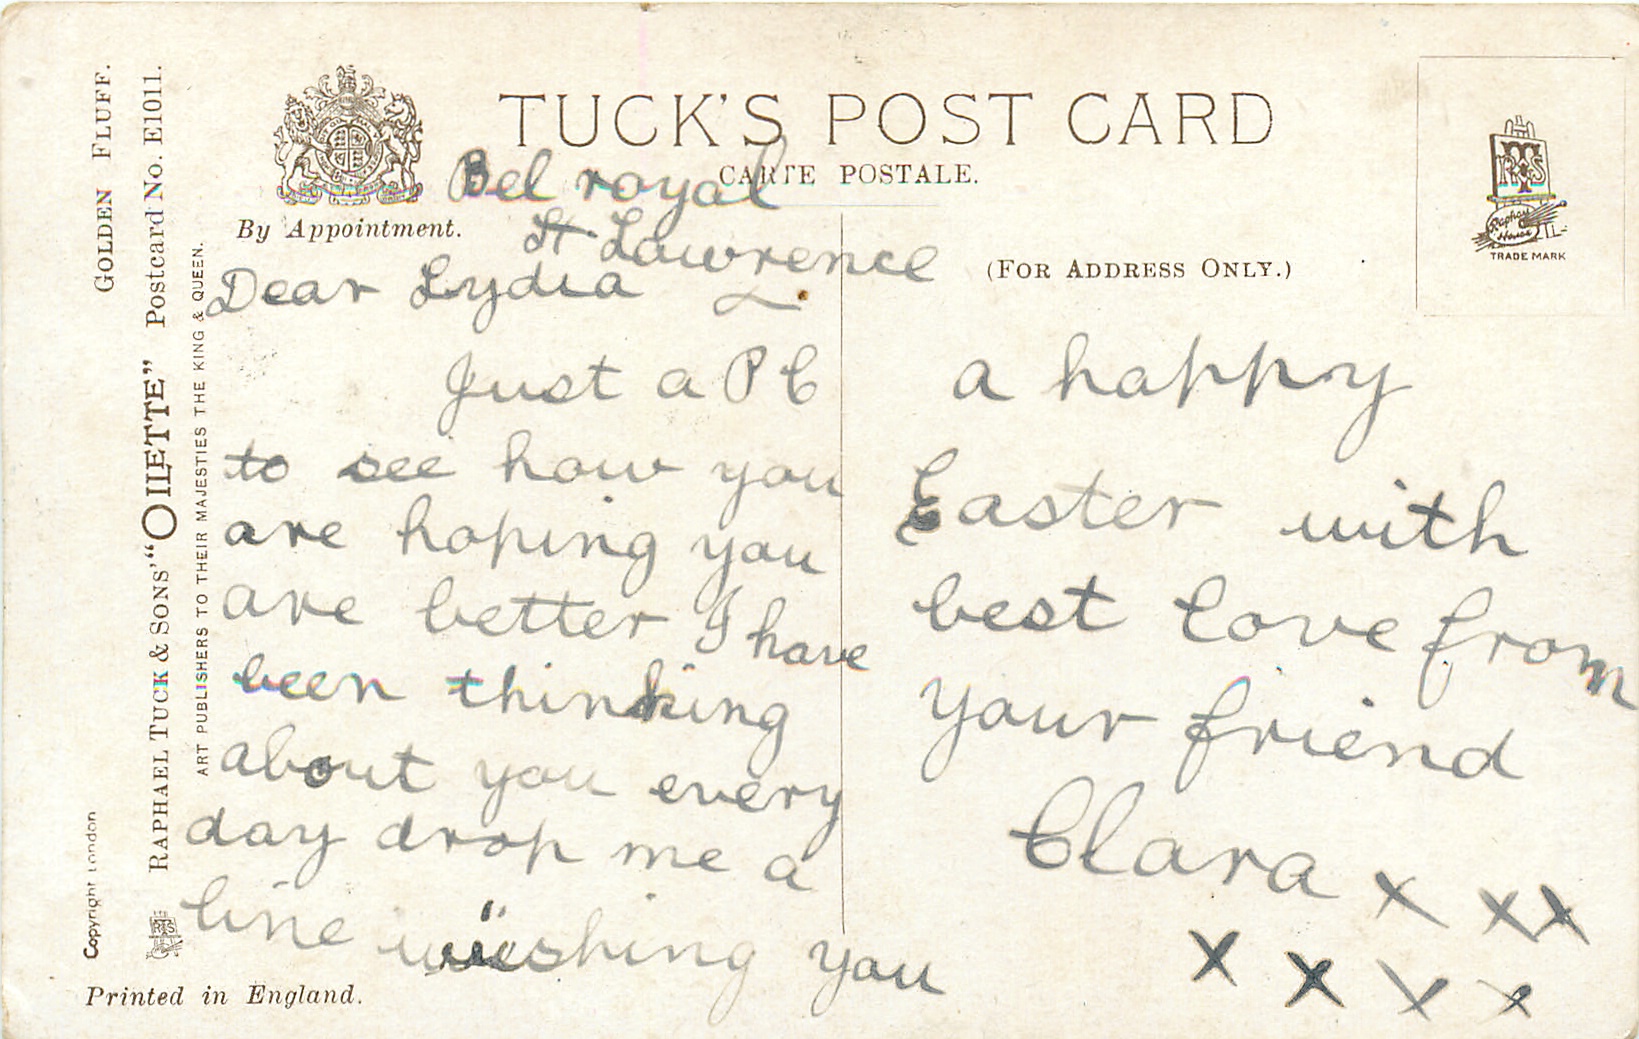 TUCK'S POST CARD
CARTE POSTALE.
By Appointment.
(FOR ADDRESS ONLY.)
TRADE MARK
GOLDEN FLUFF.
RAPHAEL TUCK & SONS' "OILETTE" Postcard No. E1011.
ART PUBLISHERS TO THEIR MAJESTIES THE KING & QUEEN.
Copyright London
Printed in England.
Bel royal
St Lawrence
Dear Lydia
Just a PC
to see how you
are hoping you
are better I have
been thinking
about you every
day drop me a
line wishing you
a happy
Easter with
best love from
your friend
Clara x x x
x x x x